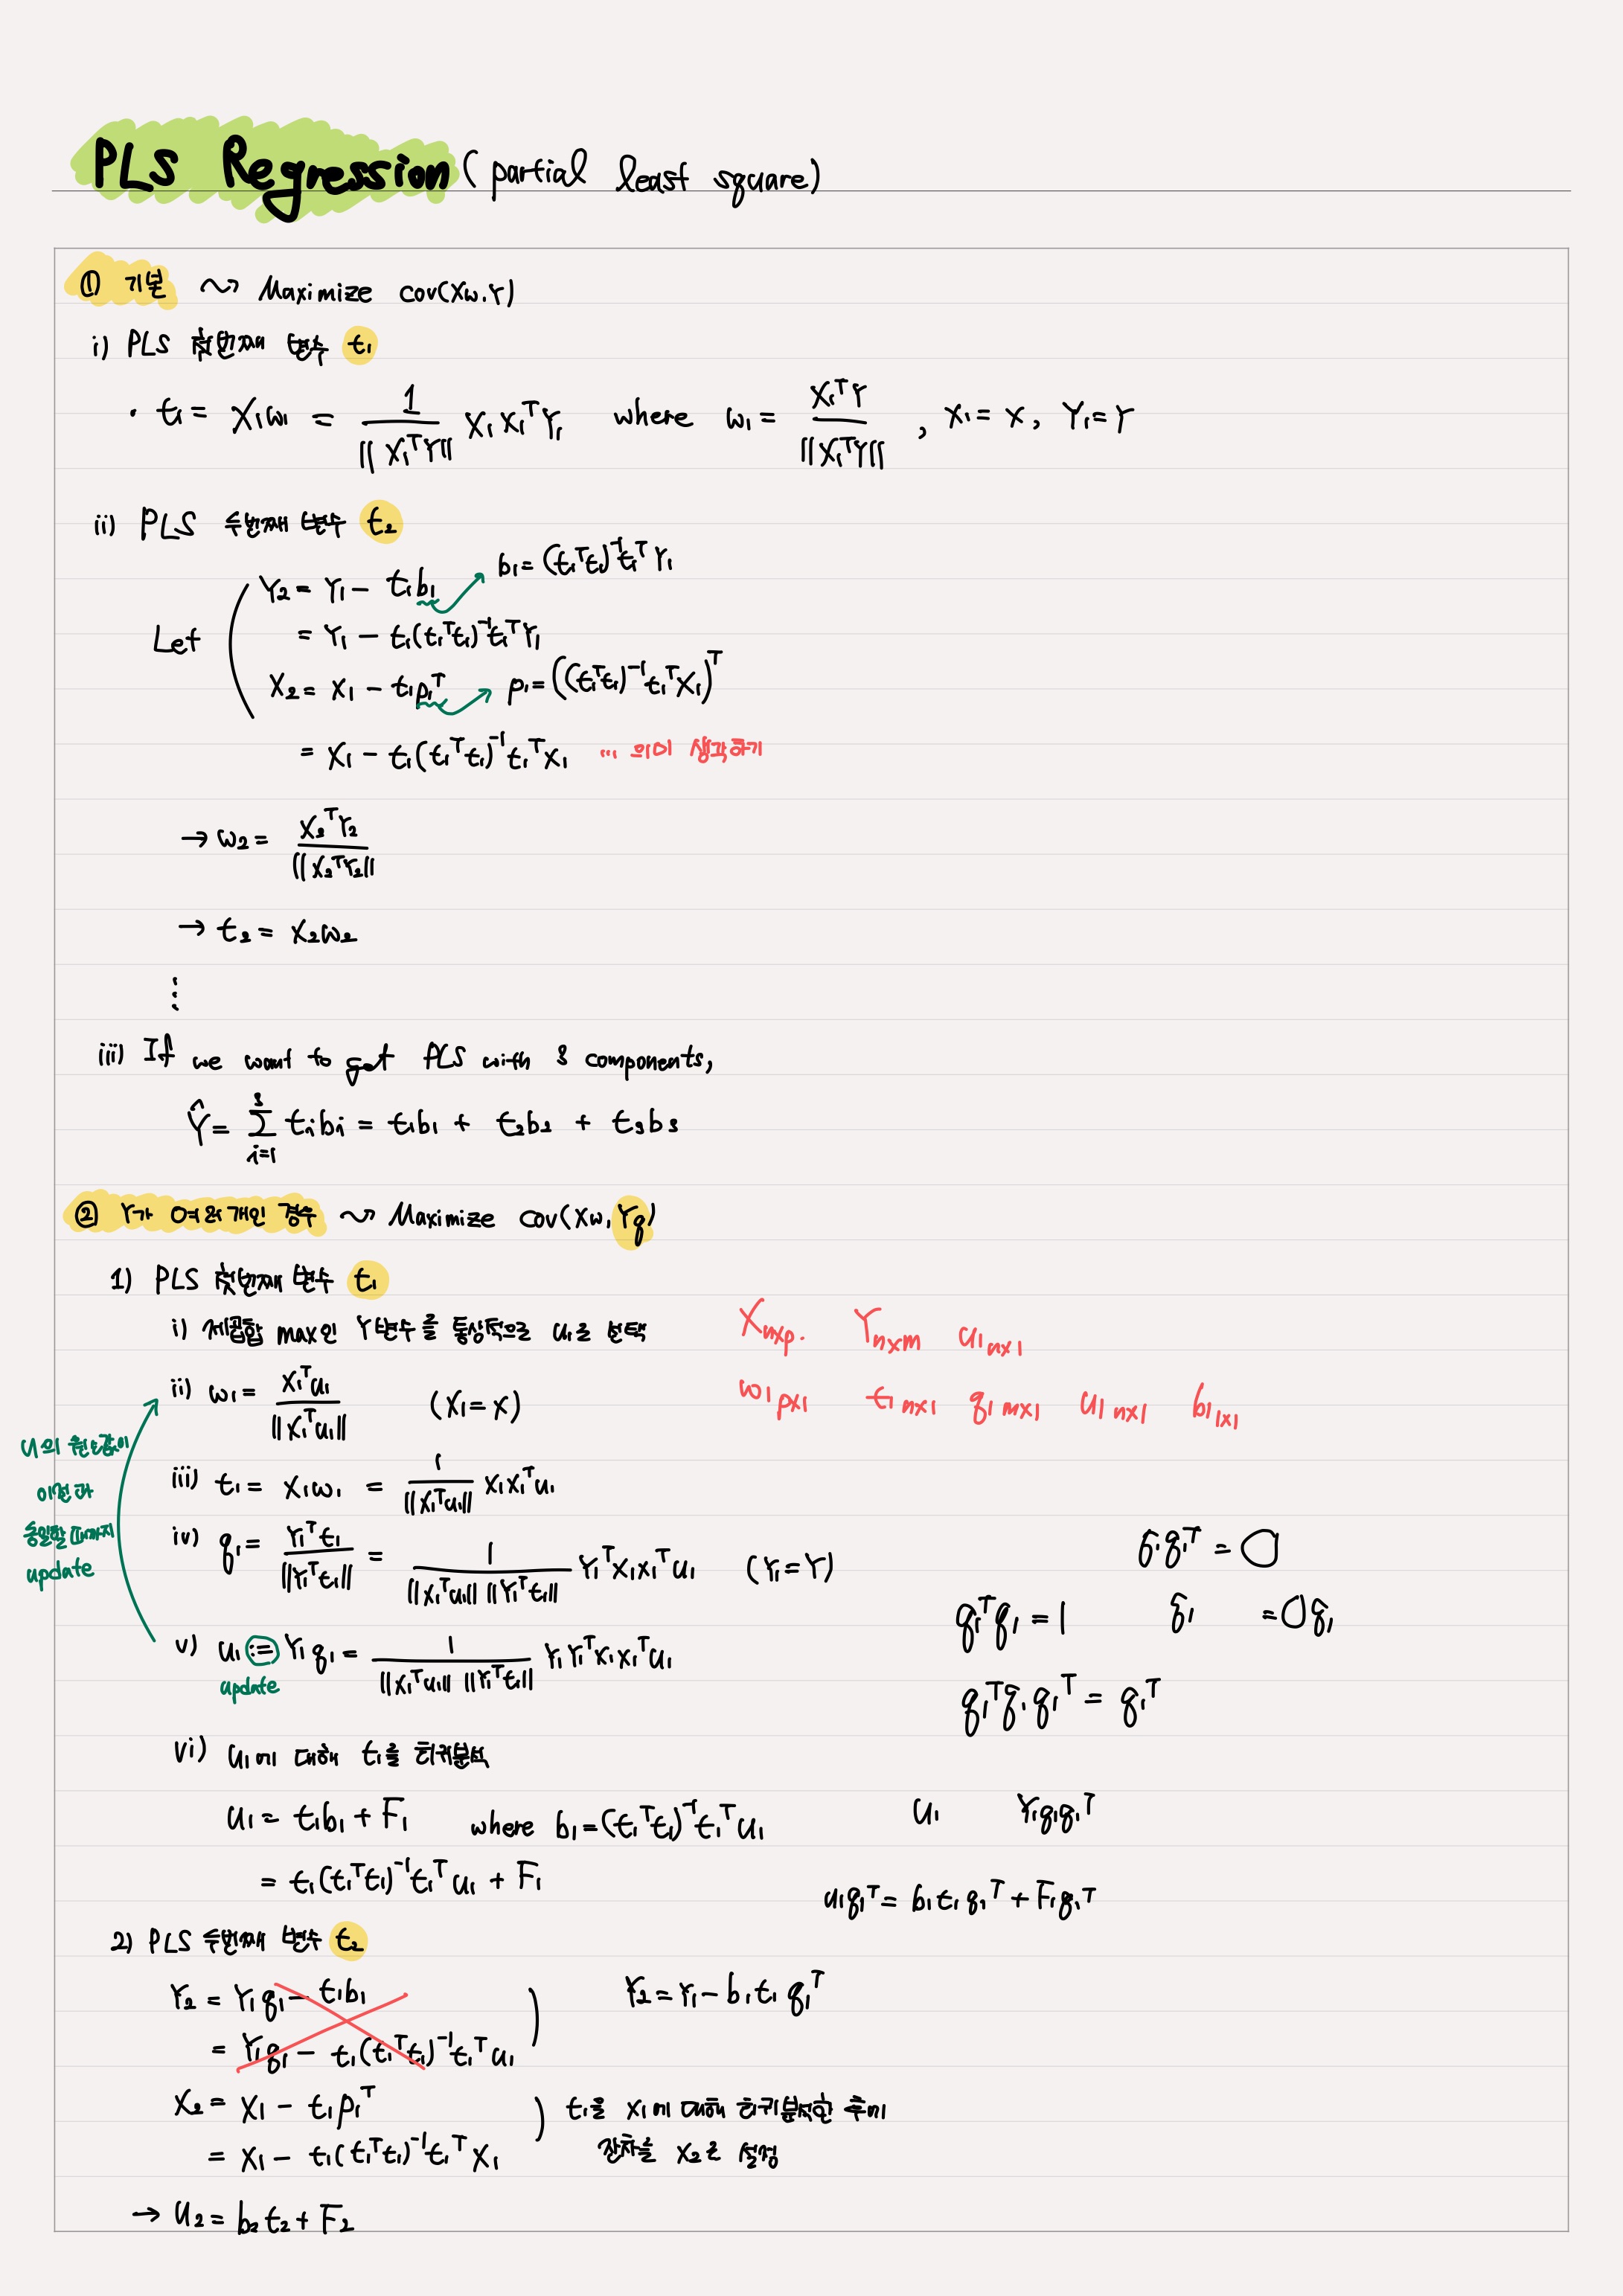 PLS Regression (partial least square)
① 기본 ⤳ Maximize cov(Xw, Y)
i) PLS 첫번째 변수 t₁
· t₁ = X₁w₁ = 1/||X₁ᵀY|| X₁X₁ᵀY₁ where w₁ = X₁ᵀY/||X₁ᵀY|| , X₁ = X, Y₁ = Y
ii) PLS 두번째 변수 t₂
Let Y₂ = Y₁ − t₁b₁ → b₁ = (t₁ᵀt₁)⁻¹t₁ᵀY₁
= Y₁ − t₁(t₁ᵀt₁)⁻¹t₁ᵀY₁
X₂ = X₁ − t₁p₁ᵀ → p₁ = ((t₁ᵀt₁)⁻¹t₁ᵀX₁)ᵀ
= X₁ − t₁(t₁ᵀt₁)⁻¹t₁ᵀX₁ ... 의미 생각하기
→ w₂ = X₂ᵀY₂/||X₂ᵀY₂||
→ t₂ = X₂w₂
⋮
iii) If we want to get PLS with 3 components,
Ŷ = Σᵢ₌₁³ tᵢbᵢ = t₁b₁ + t₂b₂ + t₃b₃
② Y가 여러개인 경우 ⤳ Maximize cov(Xw, Yq)
1) PLS 첫번째 변수 t₁
i) 제곱합 max인 Y변수를 통상적으로 u₁로 선택
X n×p. Y n×m u₁ n×1
w₁ p×1 t₁ n×1 q₁ m×1 u₁ n×1 b₁ 1×1
ii) w₁ = X₁ᵀu₁/||X₁ᵀu₁|| (X₁ = X)
iii) t₁ = X₁w₁ = 1/||X₁ᵀu₁|| X₁X₁ᵀu₁
iv) q₁ = Y₁ᵀt₁/||Y₁ᵀt₁|| = 1/(||X₁ᵀu₁|| ||Y₁ᵀt₁||) Y₁ᵀX₁X₁ᵀu₁ (Y₁ = Y)
v) u₁ := Y₁q₁ = 1/(||X₁ᵀu₁|| ||Y₁ᵀt₁||) Y₁Y₁ᵀX₁X₁ᵀu₁
update
이전과
동일할 때까지
update
q₁ᵀq₁ = 1
q₁ᵀq₁q₁ᵀ = q₁ᵀ
vi) u₁에 대해 t₁를 회귀분석
u₁ = t₁b₁ + F₁ where b₁ = (t₁ᵀt₁)⁻¹t₁ᵀu₁
= t₁(t₁ᵀt₁)⁻¹t₁ᵀu₁ + F₁
u₁ Y₁q₁q₁ᵀ
u₁q₁ᵀ = b₁t₁q₁ᵀ + F₁q₁ᵀ
2) PLS 두번째 변수 t₂
Y₂ = Y₁q₁ − t₁b₁
= Y₁q₁ − t₁(t₁ᵀt₁)⁻¹t₁ᵀu₁
Y₂ = Y₁ − b₁t₁q₁ᵀ
X₂ = X₁ − t₁p₁ᵀ
= X₁ − t₁(t₁ᵀt₁)⁻¹t₁ᵀX₁
t₁를 X₁에 대해 회귀분석한 후에
잔차를 X₂로 설정
→ u₂ = b₂t₂ + F₂